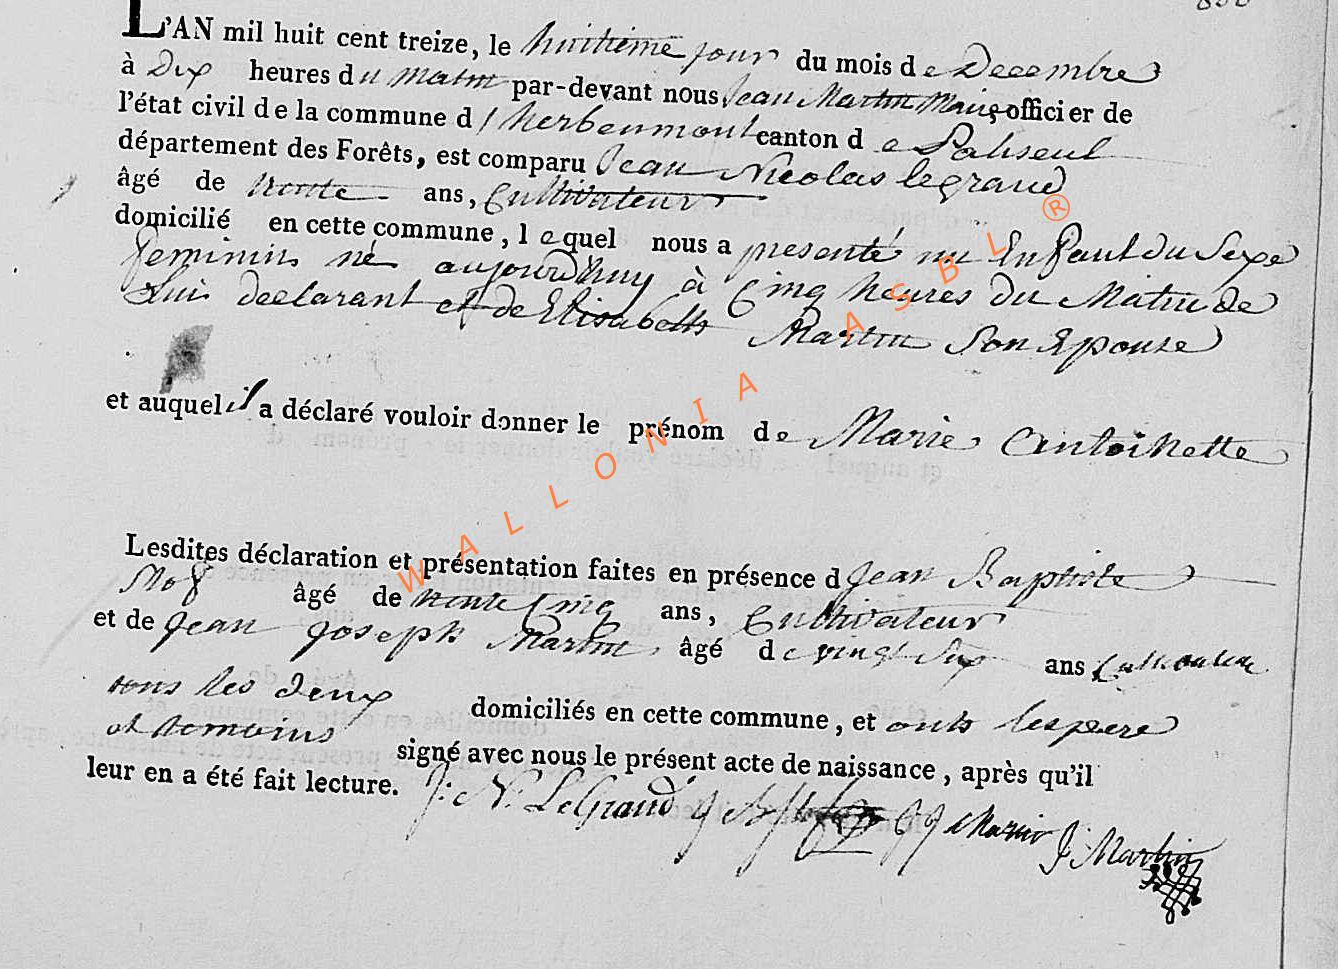 L'AN mil huit cent treize, le huitieme jour du mois de Decembre
à Dix heures du matin par-devant nous Jean Martin Maire officier de
l'état civil de la commune d'herbeumont canton de Paliseul
département des Forêts, est comparu Jean Nicolas legrand
âgé de trente ans, Cultivateur
domicilié en cette commune, lequel nous a presenté un Enfant du Sexe
feminin né aujourdhuy à Cinq heures du Matin de
Lui declarant et de Elisabeth Martin Son Epouse
et auquel il a déclaré vouloir donner le prénom de Marie Antoinette
Lesdites déclaration et présentation faites en présence d Jean Baptiste
âgé de trente Cinq ans, Cultivateur
et de Jean Joseph Martin, âgé de vingt Six ans Cultivateur
tous les deux domiciliés en cette commune, et onts les pere
et temoins signé avec nous le présent acte de naissance, après qu'il
leur en a été fait lecture. J: N: LeGrand J J Martin J: Martin
WALLONIA ASBL ®